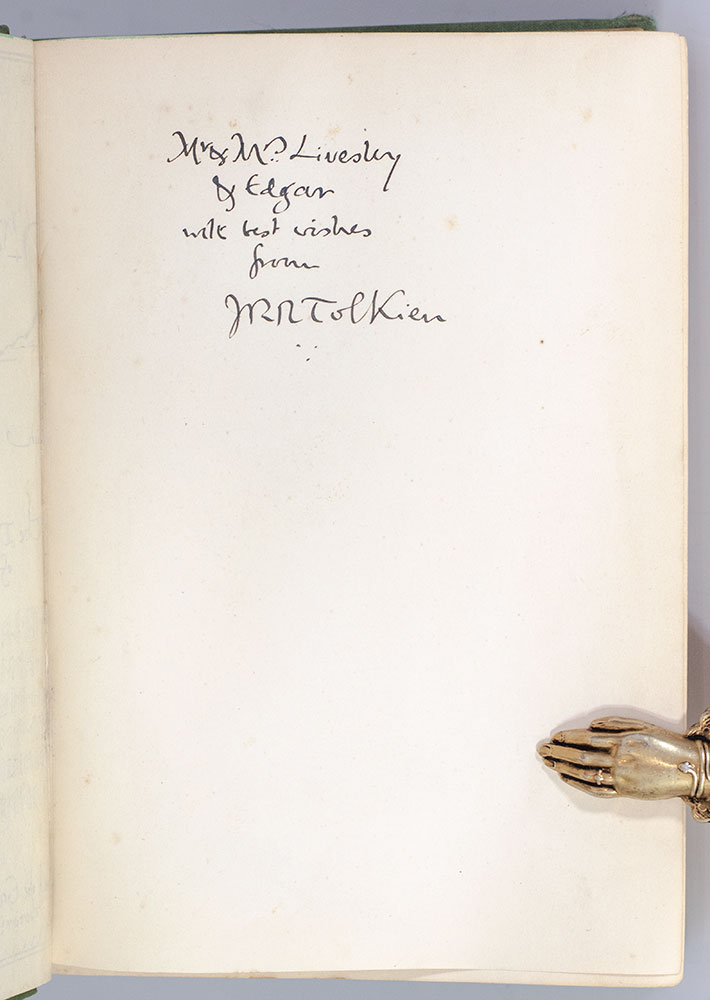 Mr & Mrs. Livesley
& Edgar
with best wishes
from
JRRTolkien